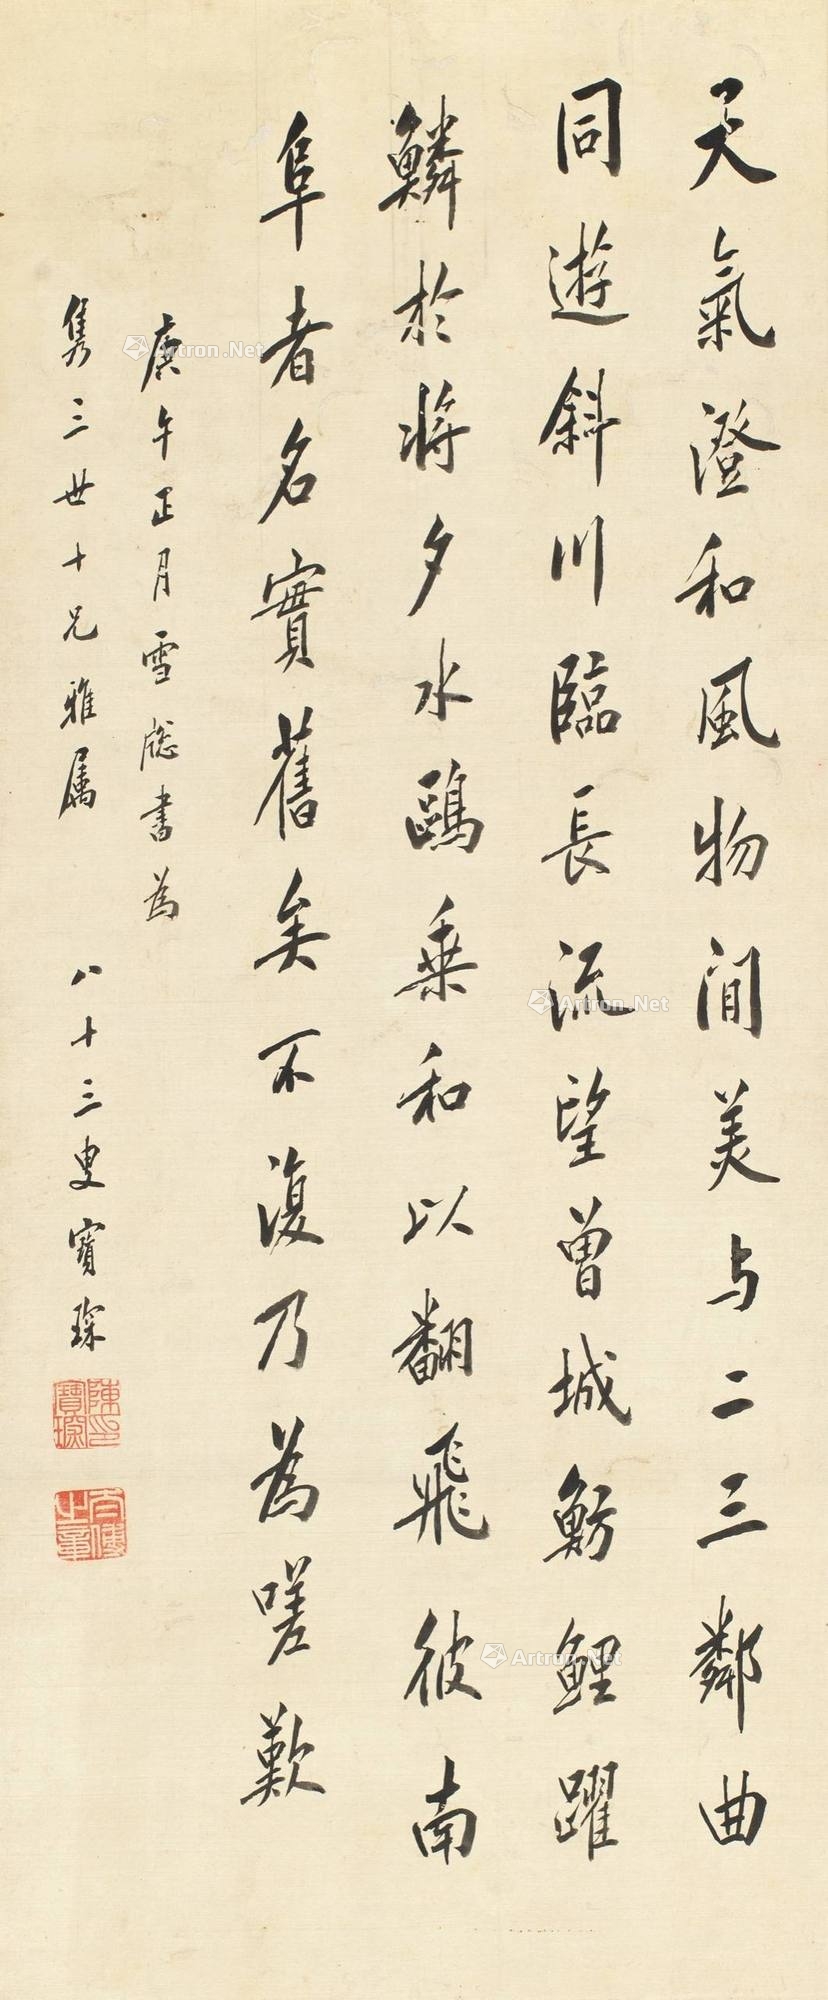 天氣澄和風物閒美与二三鄰曲
同遊斜川臨長流望曾城魴鯉躍
鱗於將夕水鷗乗和以翻飛彼南
阜者名實舊矣不復乃為嗟歎
庚午正月雪牕書為
雋三世十兄雅属
八十三叟寶琛
陳寶琛印
太傅之章
Artron.Net
Artron.Net
Artron.Net